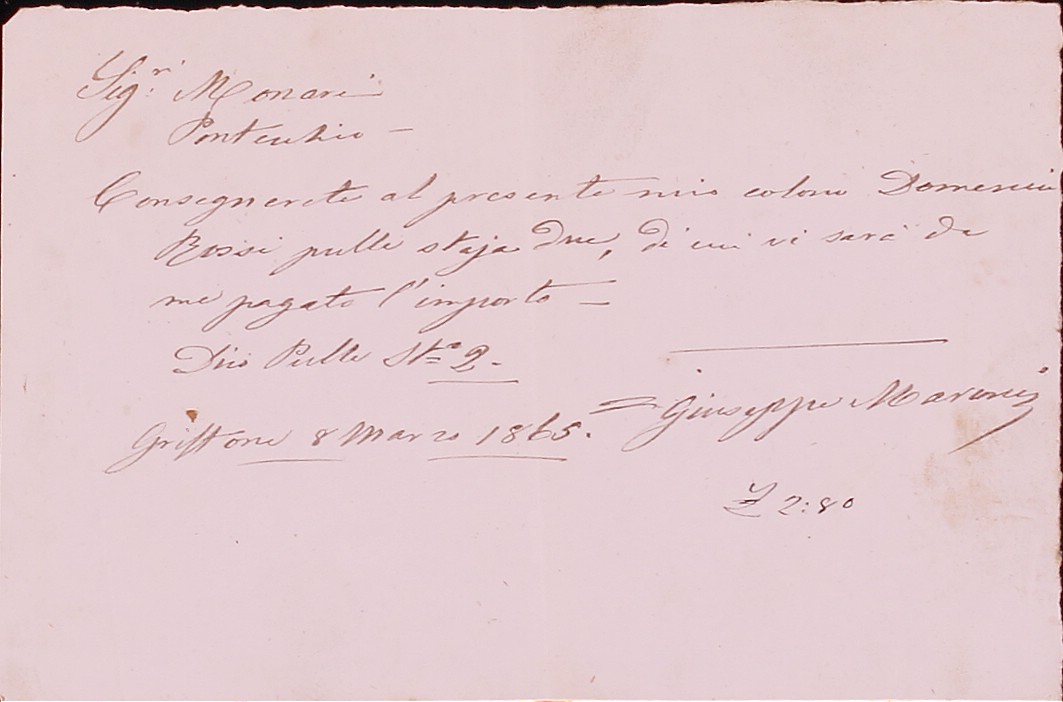 Sig.ri Monari
Pontecchio –
Consegnerete al presente mio colono Domenico
Rossi pulle staja due, di cui vi sarà da
me pagato l'importo =
Dico Pulle Sta 2 –
Griffone 8 Marzo 1865. = Giuseppe Maroni
£ 2:80